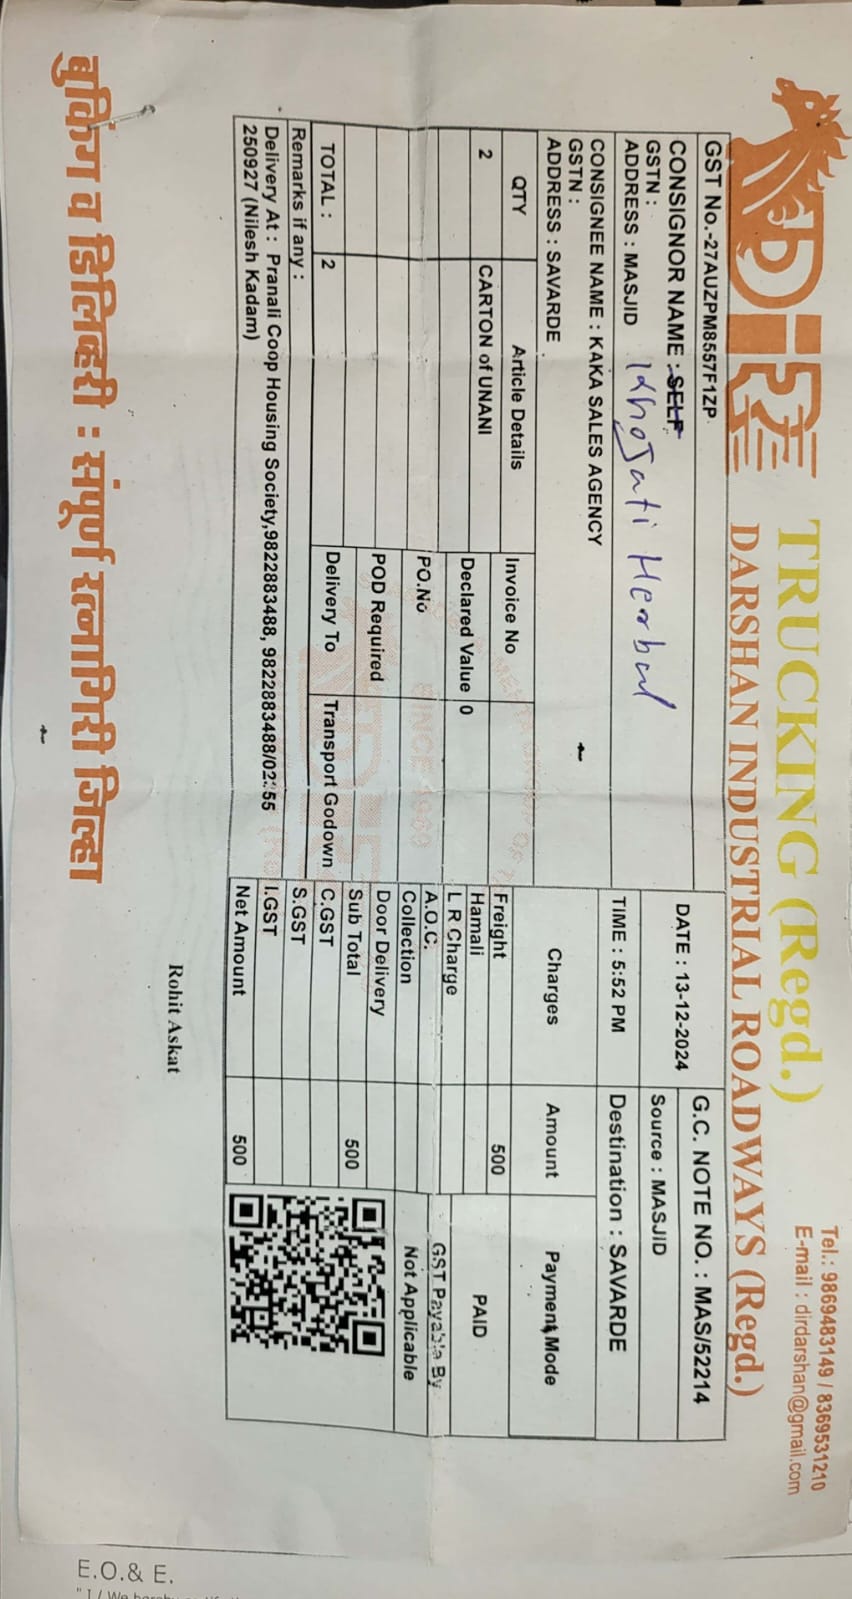 DIR
TRUCKING (Regd.)
DARSHAN INDUSTRIAL ROADWAYS (Regd.)
Tel.: 9869483149 / 8369531210
E-mail : dirdarshan@gmail.com
GST No.-27AUZPM8557F1ZP
G.C. NOTE NO. : MAS/52214
CONSIGNOR NAME : SELF
Khojati Herbal
GSTN :
ADDRESS : MASJID
DATE : 13-12-2024
Source : MASJID
CONSIGNEE NAME : KAKA SALES AGENCY
GSTN :
ADDRESS : SAVARDE
TIME : 5:52 PM
Destination : SAVARDE
QTY Article Details Invoice No Charges Amount Payment Mode
2 CARTON of UNANI Declared Value 0 Freight 500 PAID
Hamali
L R Charge
PO.No A.O.C. GST Payable By
Collection Not Applicable
POD Required Door Delivery
Sub Total 500
TOTAL : 2 Delivery To Transport Godown C.GST
Remarks if any : S.GST
Delivery At : Pranali Coop Housing Society,9822883488, 9822883488/02355 I.GST
250927 (Nilesh Kadam) Net Amount 500
SINCE 1969
Rohit Askat
बुकिंग व डिलिव्हरी : संपूर्ण रत्नागिरी जिल्हा
E.O.& E.